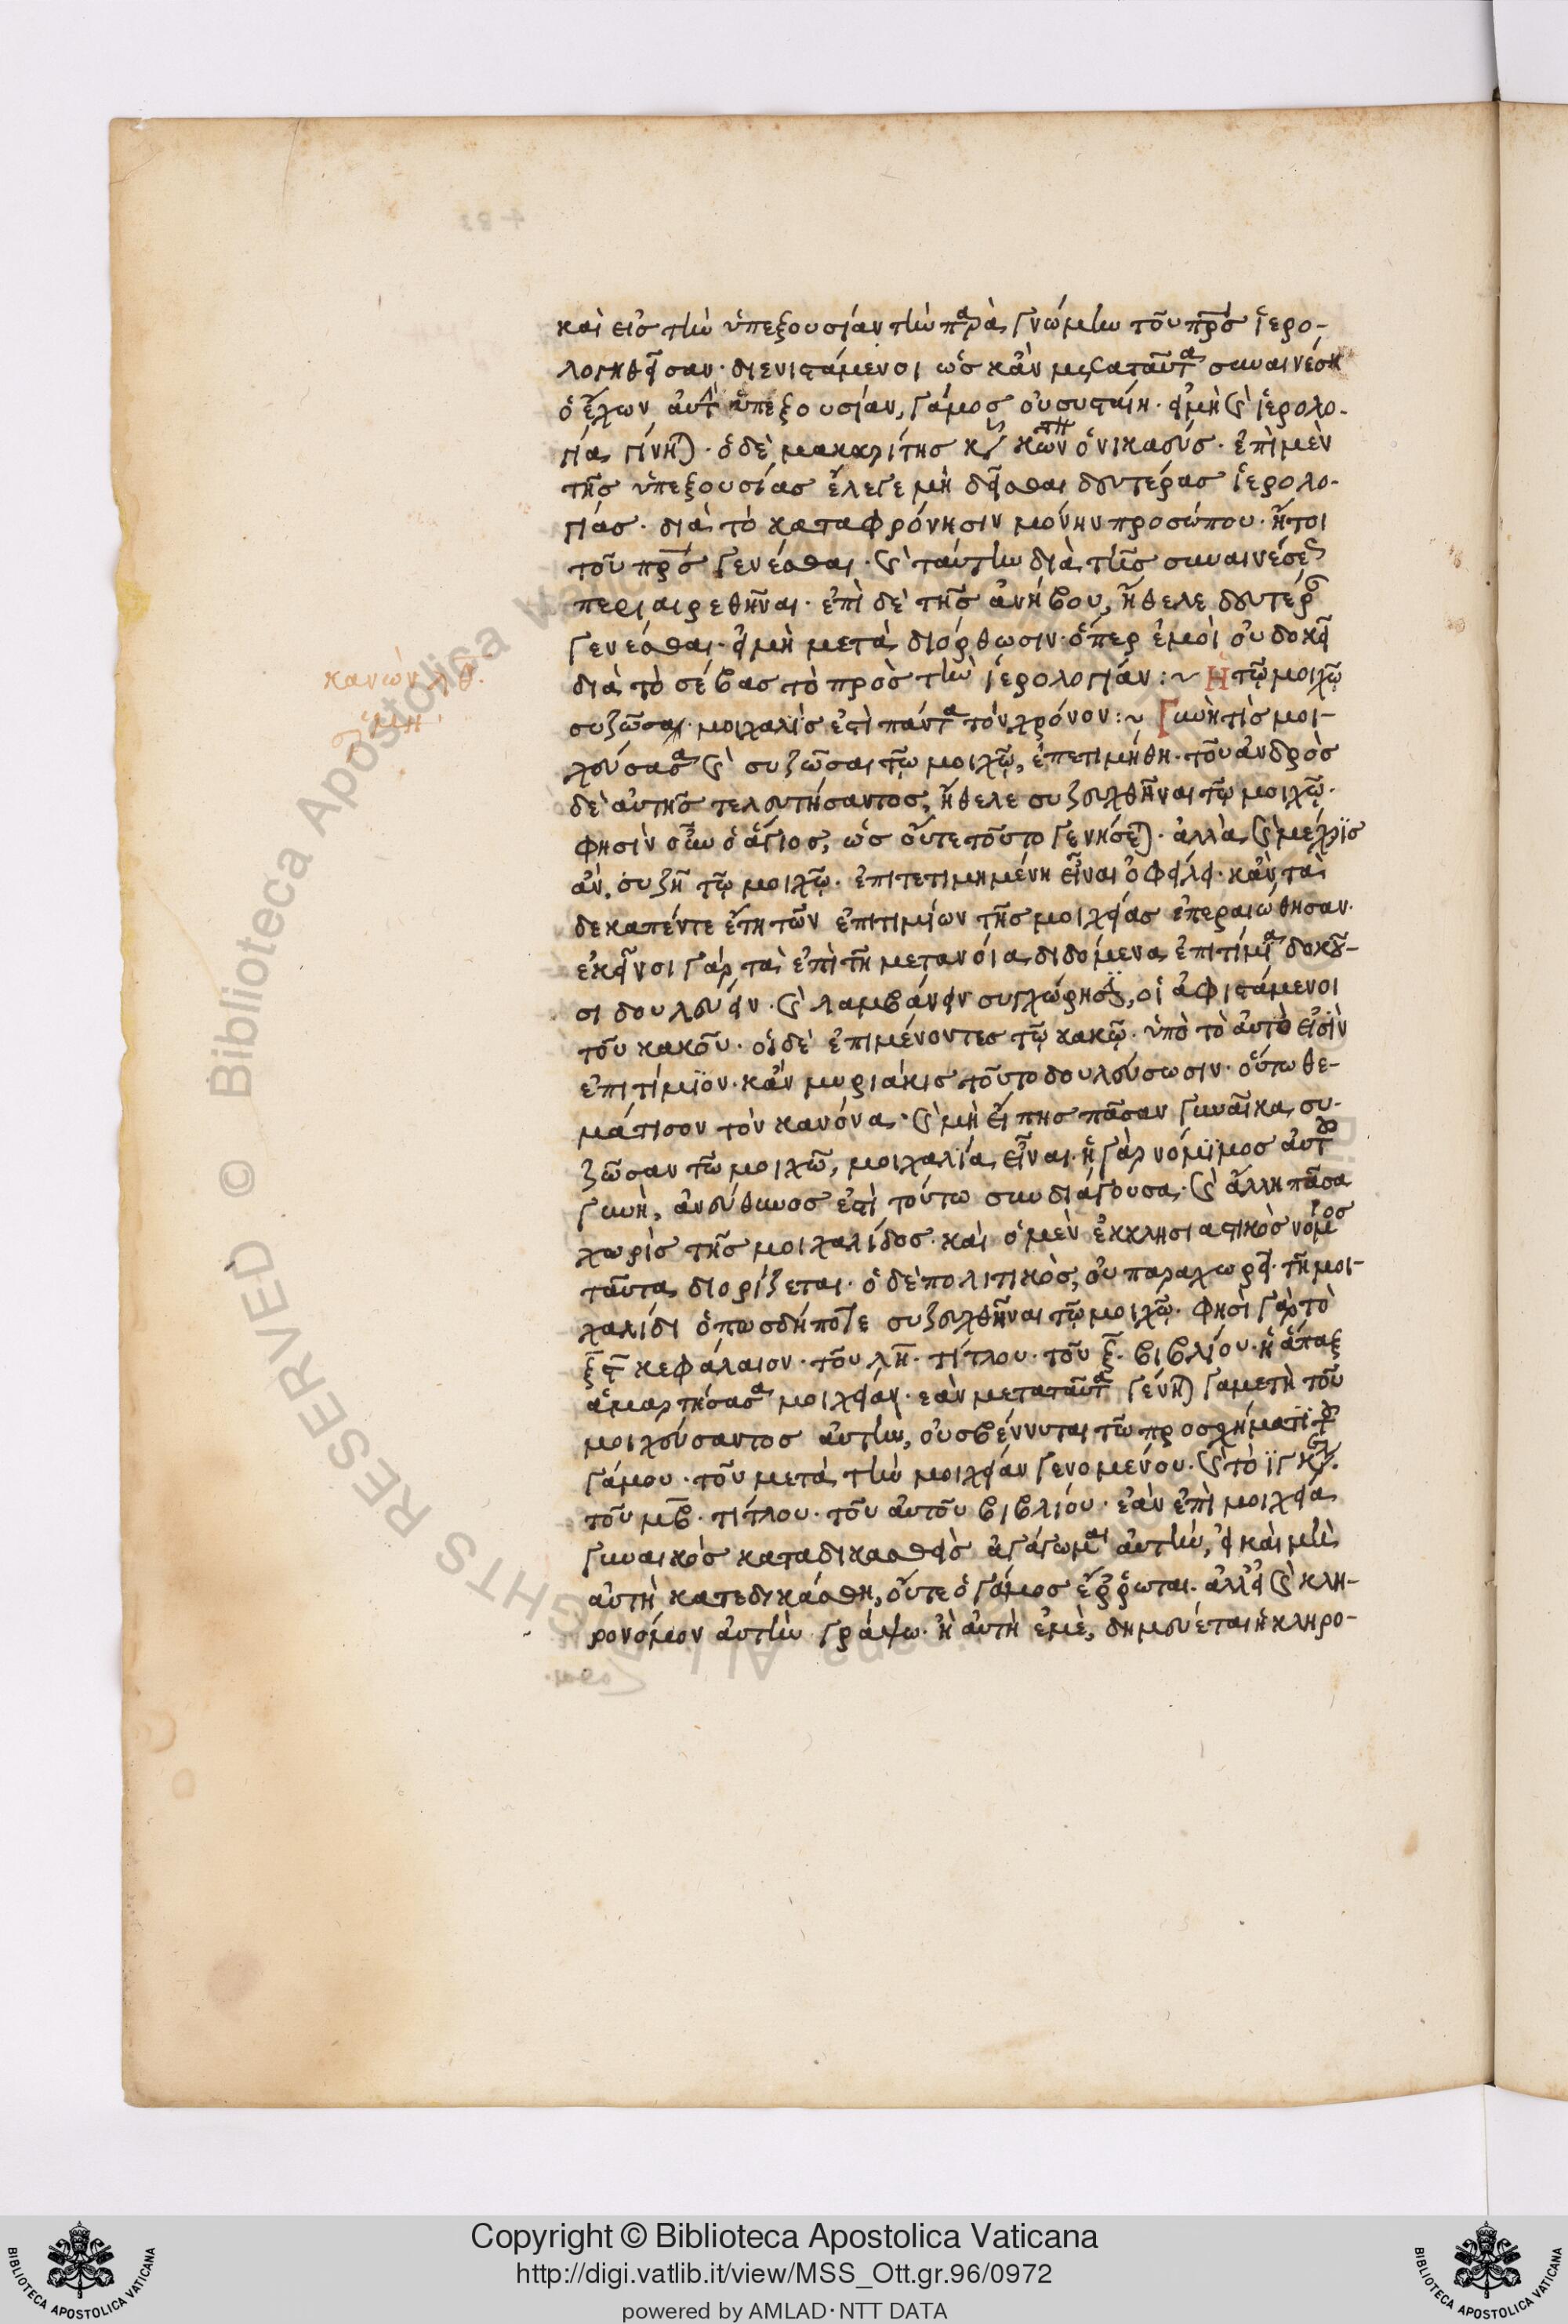 καὶ εἰς τὴν ὑπεξουσίαν τὴν παρὰ γνώμην τοῦ πρς ἱερο-
λογηθεῖσαν· διενιστάμενοι ὡς κἂν μετὰ ταῦτα συναινέση
ὁ ἔχων αὐτὴν ὑπεξουσίαν, γάμος οὐ συσταίη· εἰ μὴ καὶ ἱερολο-
γία γίνηται· ὁ δὲ μακαρίτης κῦρ κων ὁ νικαεύς· ἐπὶ μὲν
τῆς ὑπεξουσίας ἔλεγε μὴ δεῖσθαι δευτέρας ἱερολο-
γίας· διὰ τὸ καταφρόνησιν μόνην προσώπου· ἤτοι
τοῦ πρς γενέσθαι· καὶ ταύτην διὰ τῆς συναινέσεως
περιαιρεθῆναι· ἐπὶ δὲ τῆς ἀνήβου, ἤθελε δευτέραν
γενέσθαι· εἰ μὴ μετὰ διόρθωσιν· ὅπερ ἐμοὶ οὐ δοκεῖ
διὰ τὸ σέβας τὸ πρὸς τὴν ἱερολογίαν:~ Ἡ τῷ μοιχῷ
συζῶσα· μοιχαλίς ἐστὶ πάντα τὸν χρόνον:~ Γυνὴ τὶς μοι-
χεύσασα καὶ συζῶσα τῷ μοιχῷ, ἐπετιμήθη· τοῦ ἀνδρὸς
δὲ αὐτῆς τελευτήσαντος, ἤθελε συζευχθῆναι τῷ μοιχῷ·
φησὶν οὖν ὁ ἅγιος, ὡς οὔτε τοῦτο γενήσεται· ἀλλὰ καὶ μέχρις
ἂν συζῆ τῷ μοιχῷ· ἐπιτετιμημένη εἶναι ὀφείλει· κἂν τὰ
δεκαπέντε ἔτη τῶν ἐπιτιμίων τῆς μοιχείας ἐπεραιώθησαν·
ἐκεῖνοι γὰρ τὰ ἐπὶ τῆ μετανοία διδόμενα ἐπιτίμια δοκοῦ-
σι δουλεύειν· καὶ λαμβάνειν συγχώρησιν, οἱ ἀφιστάμενοι
τοῦ κακοῦ· οἱ δὲ ἐπιμένοντες τῷ κακῷ· ὑπὸ τὸ αὐτὸ εἰσὶν
ἐπιτίμιον· κἂν μυριάκις τοῦτο δουλεύσωσιν· οὕτω θε-
μάτισον τὸν κανόνα· καὶ μὴ εἴπης πᾶσαν γυναῖκα συ-
ζῶσαν τῶ μοιχῶ, μοιχαλίδα εἶναι· ἡ γὰρ νόμιμος αὐτοῦ
γυνὴ, ἀνεύθυνος ἐστὶ τούτω συνδιάγουσα· καὶ ἄλλη πᾶσα
χωρὶς τῆς μοιχαλίδος· καὶ ὁ μὲν ἐκκλησιαστικὸς νόμος
ταῦτα διορίζεται· ὁ δὲ πολιτικὸς, οὐ παραχωρεῖ τῆ μοι-
χαλίδι ὁπωσδήποτε συζευχθῆναι τῷ μοιχῷ· φησὶ γὰρ τὸ
ξϛ κεφάλαιον· τοῦ λη· τίτλου· τοῦ ξ· βιβλίου· ἡ ἅπαξ
ἁμαρτήσασα μοιχείαν· ἐὰν μετὰ ταῦτα γένηται γαμετὴ τοῦ
μοιχεύσαντος αὐτὴν, οὐ σβέννυται τῶ προσχήματι τοῦ
γάμου· τοῦ μετὰ τὴν μοιχείαν γενομένου· καὶ τὸ ιγ κεφ.
τοῦ μβ· τίτλου· τοῦ αὐτοῦ βιβλίου· ἐὰν ἐπὶ μοιχεία
γυναικὸς καταδικασθεὶς ἀγάγωμαι αὐτὴν, εἰ καὶ μὴ
αὐτὴ κατεδικάσθη, οὔτε ὁ γάμος ἔρρωται· ἀλλ' εἰ καὶ κλη-
ρονόμον αὐτὴν γράψω· ἢ αὐτὴ ἐμὲ, δημεύεται ἡ κληρο-
κανὼν λθ.
Copyright © Biblioteca Apostolica Vaticana
http://digi.vatlib.it/view/MSS_Ott.gr.96/0972
powered by AMLAD·NTT DATA
BIBLIOTECA APOSTOLICA VATICANA
BIBLIOTECA APOSTOLICA VATICANA